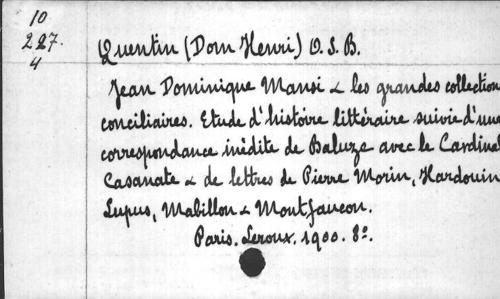 10
227.
4
Quentin (Dom Henri) O. S. B.
Jean Dominique Mansi & les grandes collection
conciliaires. Etude d'histoire littéraire suivie d'une
correspondance inédite de Baluze avec le Cardinal
Casanate & de lettres de Pierre Morin, Hardouin
Lupus, Mabillon & Montfaucon.
Paris. Leroux. 1900. 8º.